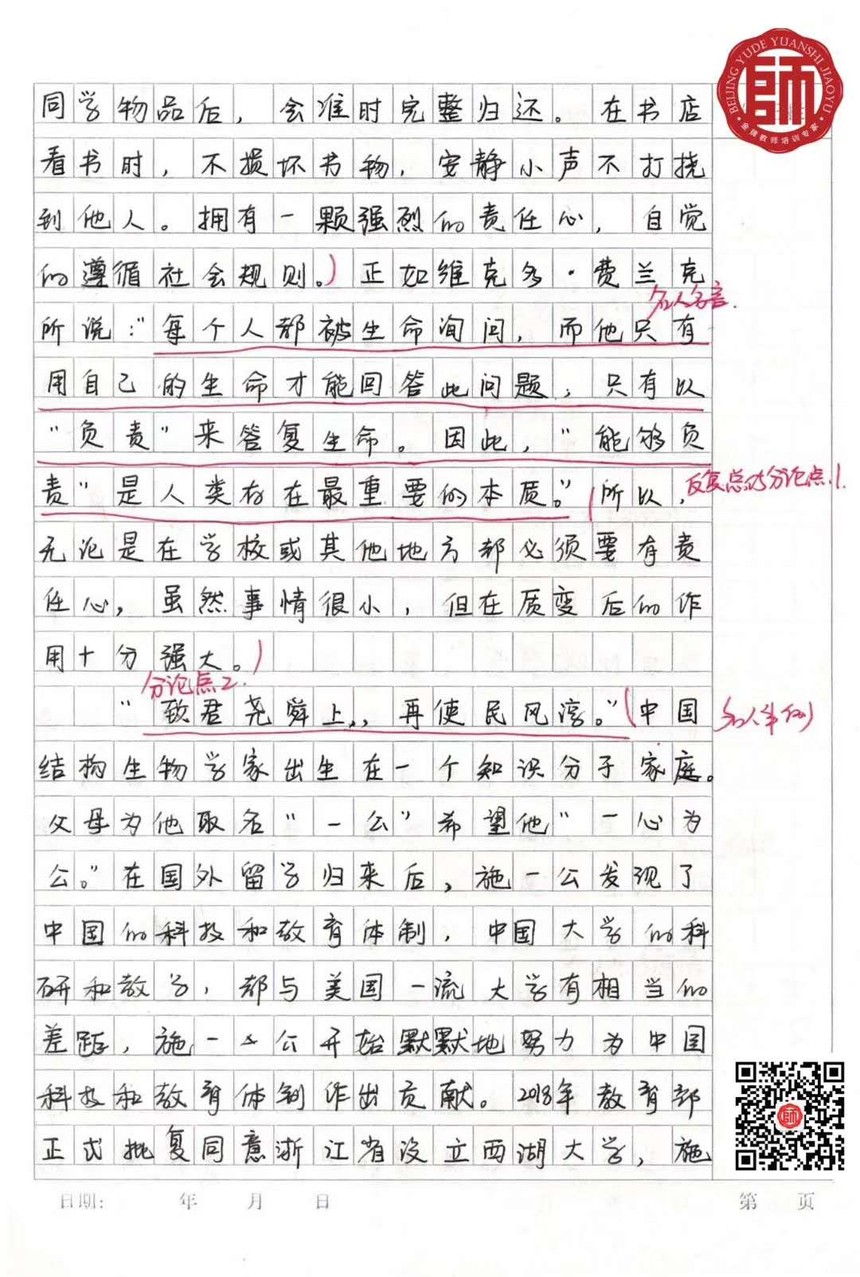 BEIJING YUDE YUANSHI JIAOYU
師
金牌教师培训专家
同学物品后，会准时完整归还。在书店
看书时，不损坏书物，安静小声不打挠
到他人。拥有一颗强烈的责任心，自觉
的遵循社会规则。正如维克多·费兰克
名人名言.
所说："每个人都被生命询问，而他只有
用自己的生命才能回答此问题，只有以
"负责"来答复生命。因此，"能够负
责"是人类存在最重要的本质。"所以，
反复总结分论点1.
无论是在学校或其他地方都必须要有责
任心，虽然事情很小，但在质变后的作
用十分强大。
分论点2.
"致君尧舜上,，再使民风淳。"中国
名人事例
结构生物学家出生在一个知识分子家庭。
父母为他取名"一公"希望他"一心为
公。"在国外留学归来后，施一公发现了
中国的科技和教育体制，中国大学的科
研和教学，都与美国一流大学有相当的
差距，施一公开始默默地努力为中国
科技和教育体制作出贡献。2018年教育部
正式批复同意浙江省设立西湖大学，施
師
日期： 年 月 日 第 页